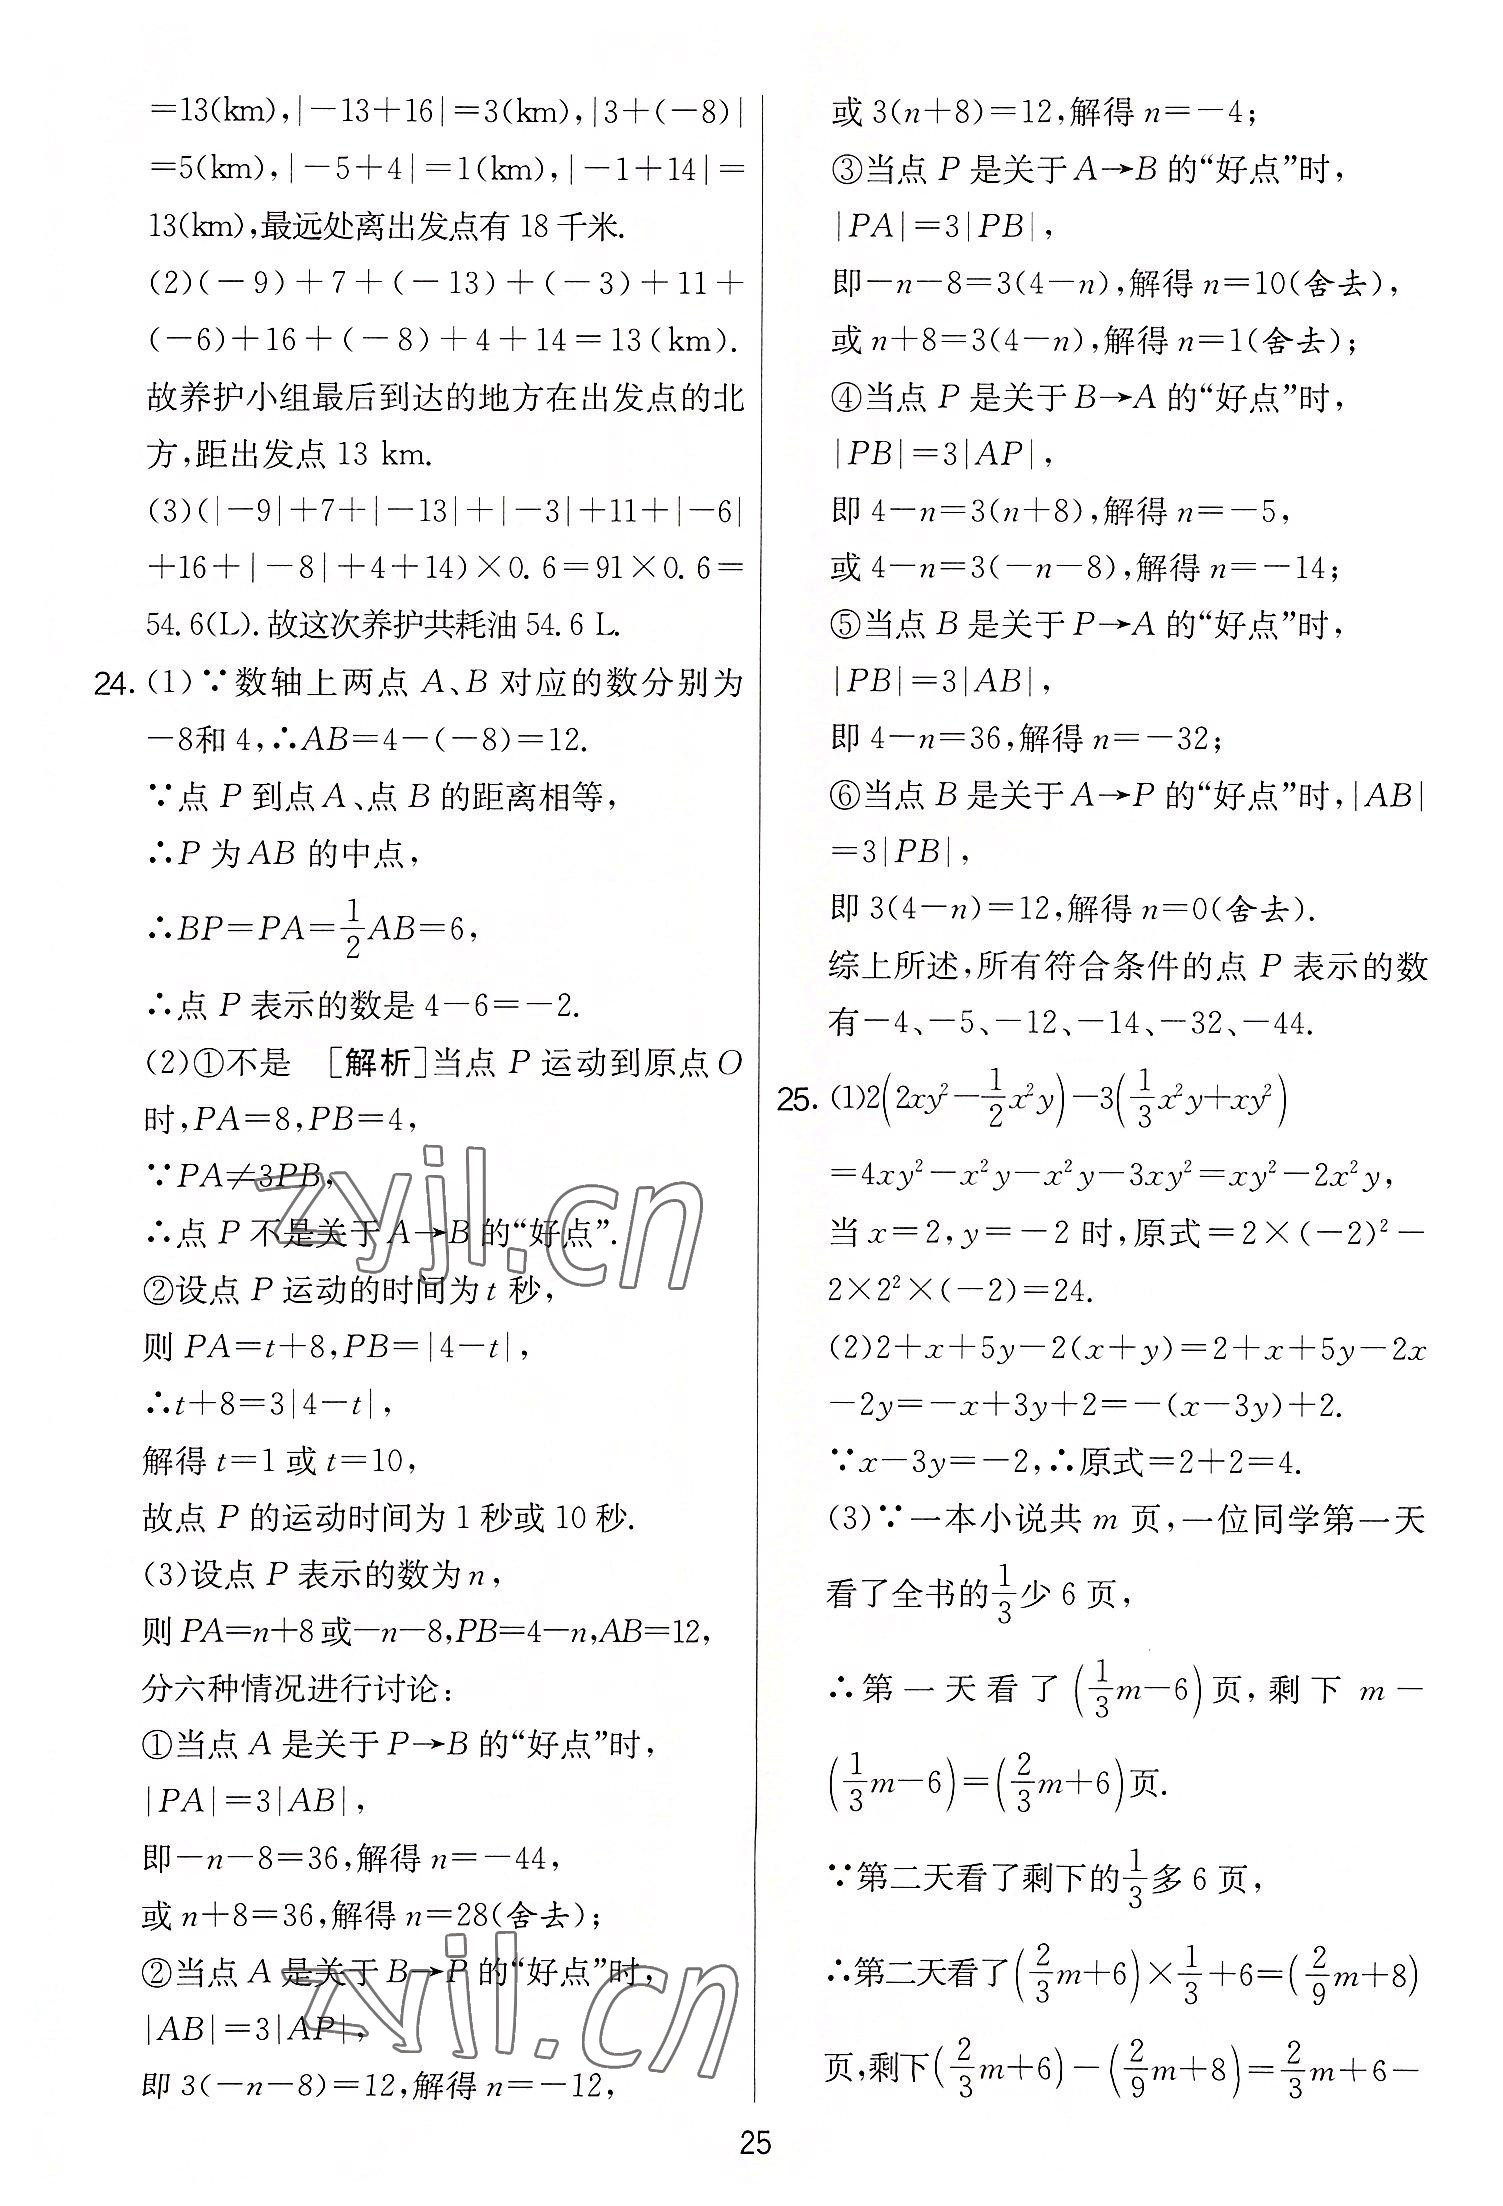 =13(km),|-13+16|=3(km),|3+(-8)|
=5(km),|-5+4|=1(km),|-1+14|=
13(km),最远处离出发点有 18 千米.
(2)(-9)+7+(-13)+(-3)+11+
(-6)+16+(-8)+4+14=13(km).
故养护小组最后到达的地方在出发点的北
方,距出发点 13 km.
(3)(|-9|+7+|-13|+|-3|+11+|-6|
+16+|-8|+4+14)×0.6=91×0.6=
54.6(L).故这次养护共耗油 54.6 L.
24. (1)∵数轴上两点 A、B 对应的数分别为
-8和 4,∴AB=4-(-8)=12.
∵点 P 到点 A、点 B 的距离相等,
∴P 为 AB 的中点,
∴BP=PA=1/2AB=6,
∴点 P 表示的数是 4-6=-2.
(2)①不是 [解析]当点 P 运动到原点 O
时,PA=8,PB=4,
∵PA≠3PB,
∴点 P 不是关于 A→B 的“好点”.
②设点 P 运动的时间为 t 秒,
则 PA=t+8,PB=|4-t|,
∴t+8=3|4-t|,
解得 t=1 或 t=10,
故点 P 的运动时间为 1 秒或 10 秒.
(3)设点 P 表示的数为 n,
则 PA=n+8 或-n-8,PB=4-n,AB=12,
分六种情况进行讨论:
①当点 A 是关于 P→B 的“好点”时,
|PA|=3|AB|,
即-n-8=36,解得 n=-44,
或 n+8=36,解得 n=28(舍去);
②当点 A 是关于 B→P 的“好点”时,
|AB|=3|AP|,
即 3(-n-8)=12,解得 n=-12,
或 3(n+8)=12,解得 n=-4;
③当点 P 是关于 A→B 的“好点”时,
|PA|=3|PB|,
即-n-8=3(4-n),解得 n=10(舍去),
或 n+8=3(4-n),解得 n=1(舍去);
④当点 P 是关于 B→A 的“好点”时,
|PB|=3|AP|,
即 4-n=3(n+8),解得 n=-5,
或 4-n=3(-n-8),解得 n=-14;
⑤当点 B 是关于 P→A 的“好点”时,
|PB|=3|AB|,
即 4-n=36,解得 n=-32;
⑥当点 B 是关于 A→P 的“好点”时,|AB|
=3|PB|,
即 3(4-n)=12,解得 n=0(舍去).
综上所述,所有符合条件的点 P 表示的数
有-4、-5、-12、-14、-32、-44.
25. (1)2(2xy²-1/2x²y)-3(1/3x²y+xy²)
=4xy²-x²y-x²y-3xy²=xy²-2x²y,
当 x=2,y=-2 时,原式=2×(-2)²-
2×2²×(-2)=24.
(2)2+x+5y-2(x+y)=2+x+5y-2x
-2y=-x+3y+2=-(x-3y)+2.
∵x-3y=-2,∴原式=2+2=4.
(3)∵一本小说共 m 页,一位同学第一天
看了全书的1/3少 6 页,
∴第一天看了(1/3m-6)页,剩下 m-
(1/3m-6)=(2/3m+6)页.
∵第二天看了剩下的1/3多 6 页,
∴第二天看了(2/3m+6)×1/3+6=(2/9m+8)
页,剩下(2/3m+6)-(2/9m+8)=2/3m+6-
25
zyjl.cn
zyjl.cn